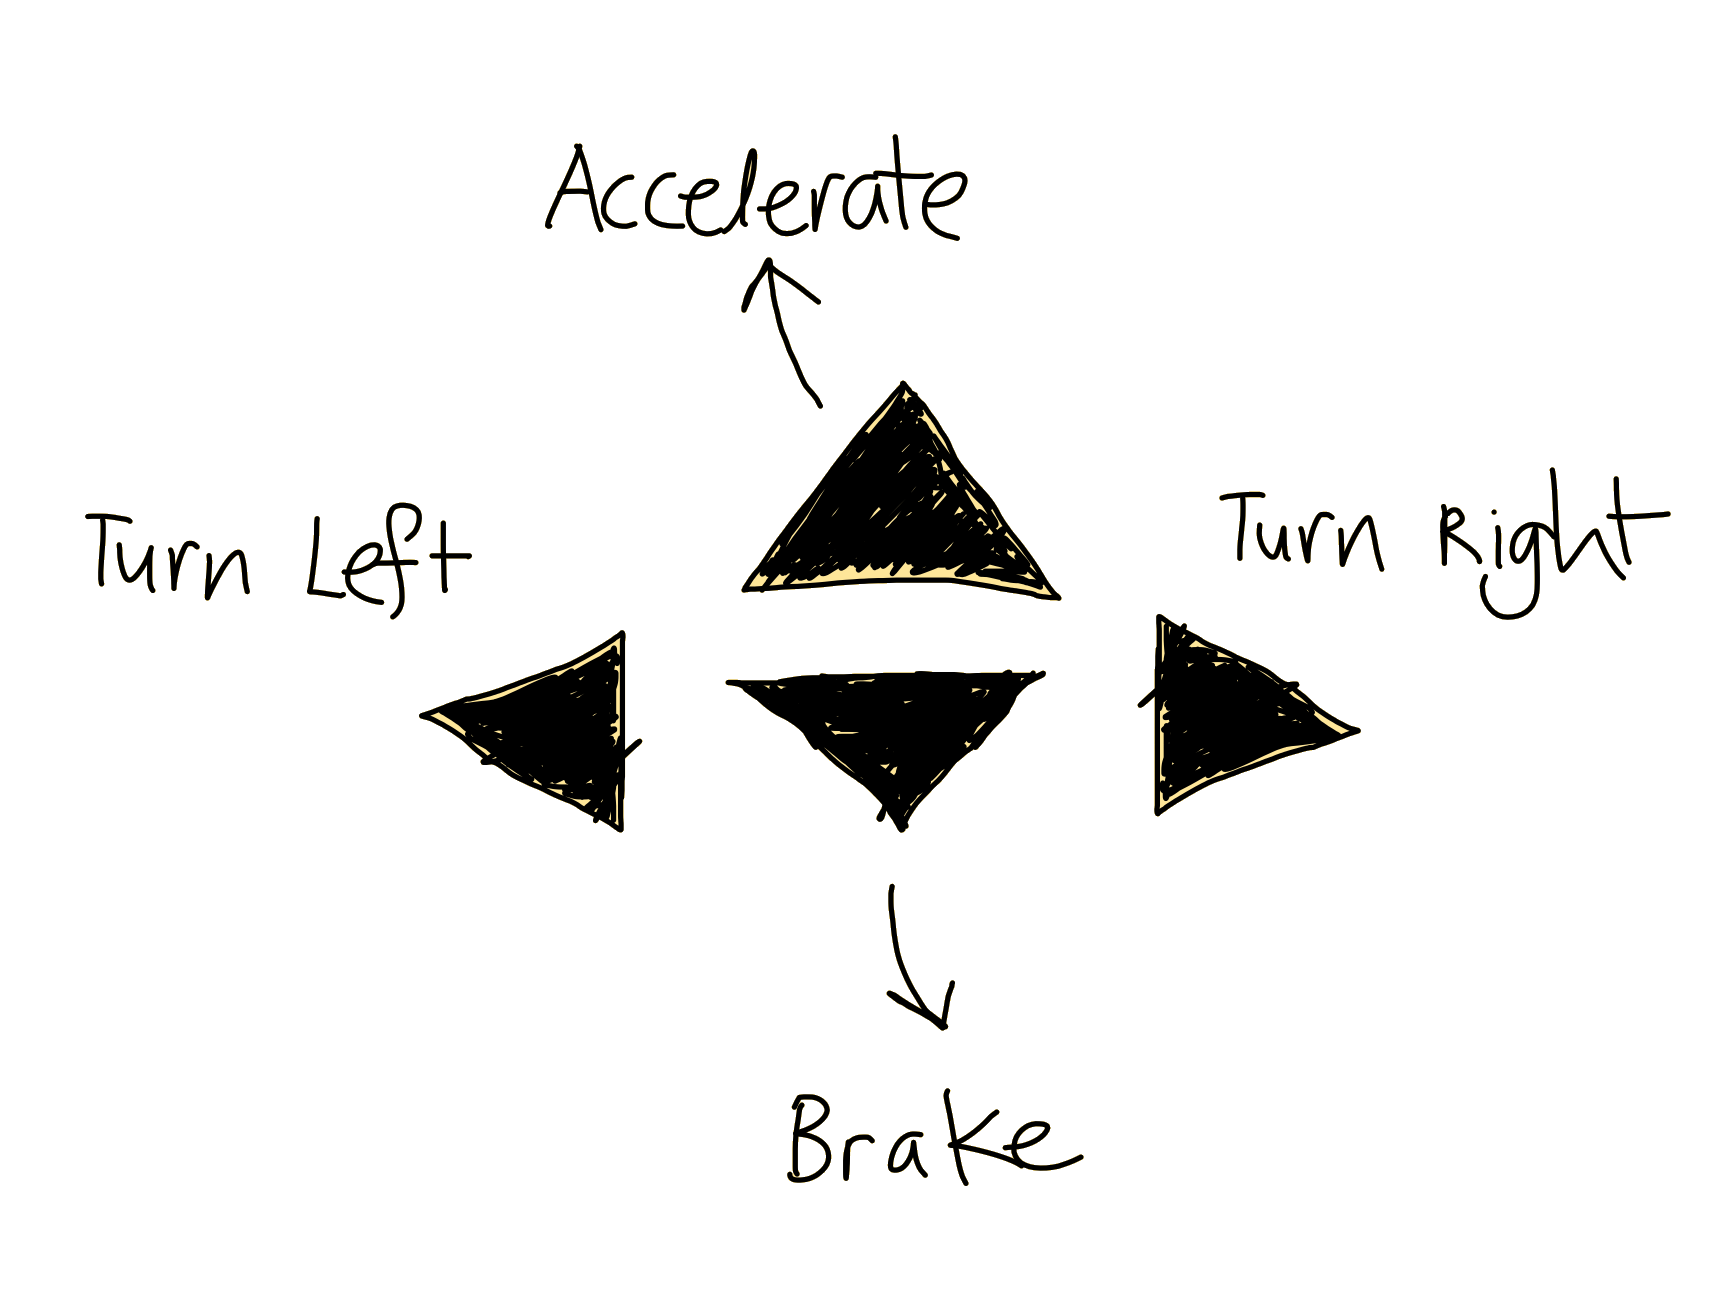 Accelerate
Turn Left
Turn Right
Brake